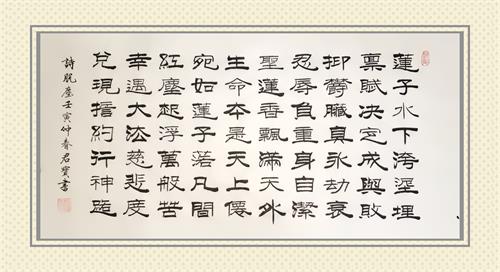 蓮子水下泥埋
稟賦決定成與敗
抑鬱臟真永劫衰
忍辱自重身自潔
聖蓮香飄滿天外
生命本是天上僊
宛如蓮子落凡間
紅塵起浮萬般苦
幸遇大法慈悲度
兌現誓約行神路
詩脫塵壬寅仲春君寶書